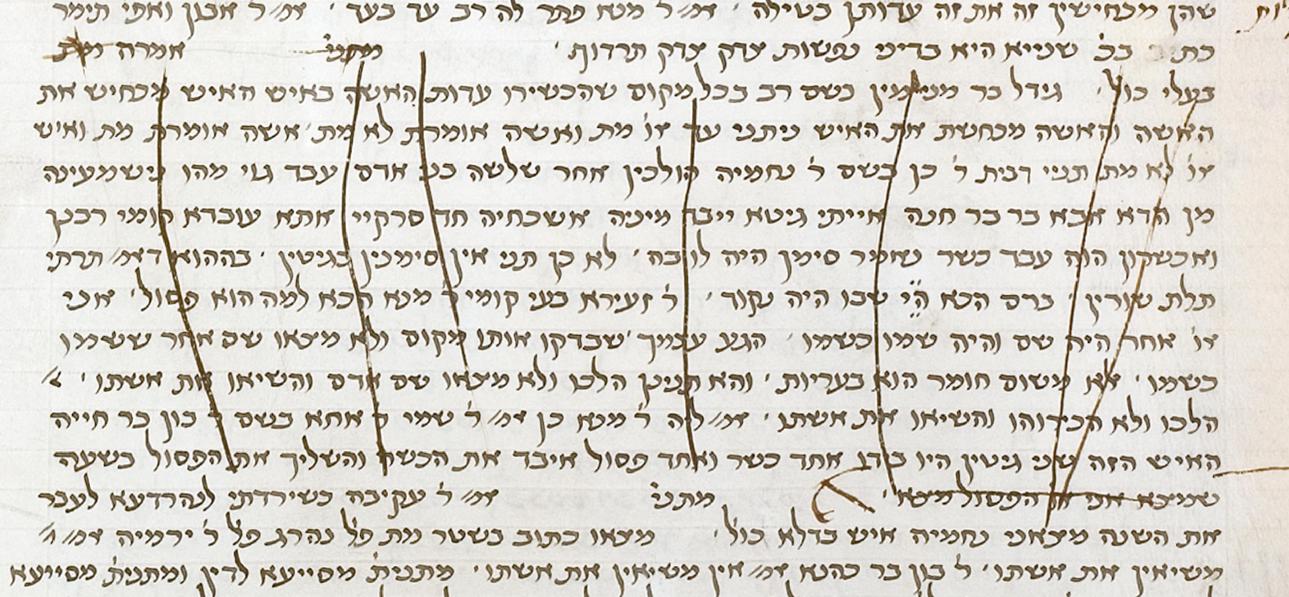 שהן מכחישין זה את זה עדותן בטילה ׳ אמ׳׳ ר׳ מנא פתר לה רב עד בעד ׳ אמ׳׳ ר׳ אבון ואפי׳ תימר
כת בכ׳ שנייא היא בדיני נפשות צדק צדק תרדוף׳ מתני׳ אמרה מת
בעלי כול׳ ׳ גידל בר מנימין בשם רב בכל מקום שהכשירו עדות האשה באיש האיש מכחיש את
האשה והאשה מכחשת את האיש ניתני עד או׳ מת ואשה אומרת לא מת ׳ אשה אומרת מת ואיש
או׳ לא מת תניי דבית ר׳ כן בשם ר׳ נחמיה הולכין אחר שלשה בני אדם עבד גוי מהו נישמעינה
מן הדא אבא בר בר חנה אייתי גיטא ייבד מיניה אשכחיה חד סרקיי אתא עובדא קומי רבנן
ואכשרון הוה עבד כשר נאמר סימן היה לו בה ׳ לא כן תני אין סימנין בגיטין ׳ בההוא דאמ׳׳ תרתי
תלת שורין ׳ ברם הכא הֵי שבו היה נקוד ׳ ר׳ זעירא בעי קומי ר׳ מנא הכא למה הוא פסול ׳ אני
או׳ אחר היה שם והיה שמו כשמו ׳ הגע עצמך ׳ שבדקו אותו מקום ולא מצאו שם אחר ששימו
כשמו ׳ אא משום חומר הוא בעריות ׳ והא תנינן הלכו ולא מצאו שם אדם והשיאו את אשתו ׳
הלכו ולא הכירוהו והשיאו את אשתו ׳ אמ׳׳ ליה ר׳ מנא כן אמ׳׳ ר׳ שמי ר׳ אחא בשם ר׳ בון בר חייה
האיש הזה שני גיטין היו בידו אחד כשר ואחד פסול איבד את הכשר והשליך את הפסול בשעה
שמצא את הפסול מצא ׳ מתני׳ אמ׳׳ ר׳ עקיבה כשירדתי לנהרדעא לעבר
את השנה מצאני נחמיה איש בדלא כול׳ ׳ מצאו כתוב בשטר מת פל׳ נהרג פל׳ ר׳ ירמיה אמ׳׳
משיאין את אשתו ׳ ר׳ בון בר כהנא אמ׳׳ אין משיאין את אשתו ׳ מתנית׳ מסייעא לדין ומתנית׳ מסייעא